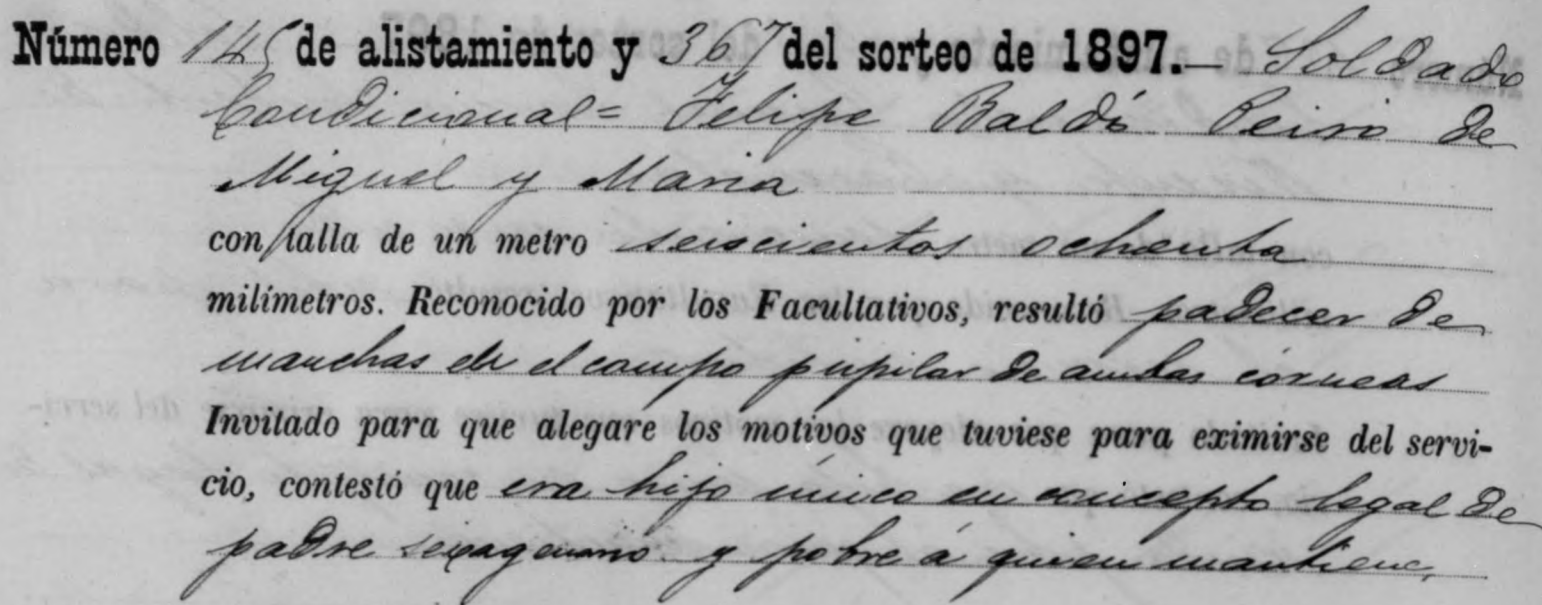 Número 145 de alistamiento y 367 del sorteo de 1897.— Soldado
Condicional= Felipe Baldó Peiro de
Miguel y Maria
con talla de un metro seiscientos ochenta
milímetros. Reconocido por los Facultativos, resultó padecer de
manchas en el campo pupilar de ambas córneas
Invitado para que alegare los motivos que tuviese para eximirse del servi-
cio, contestó que era hijo único en concepto legal de
padre sexagenario y pobre á quien mantiene,